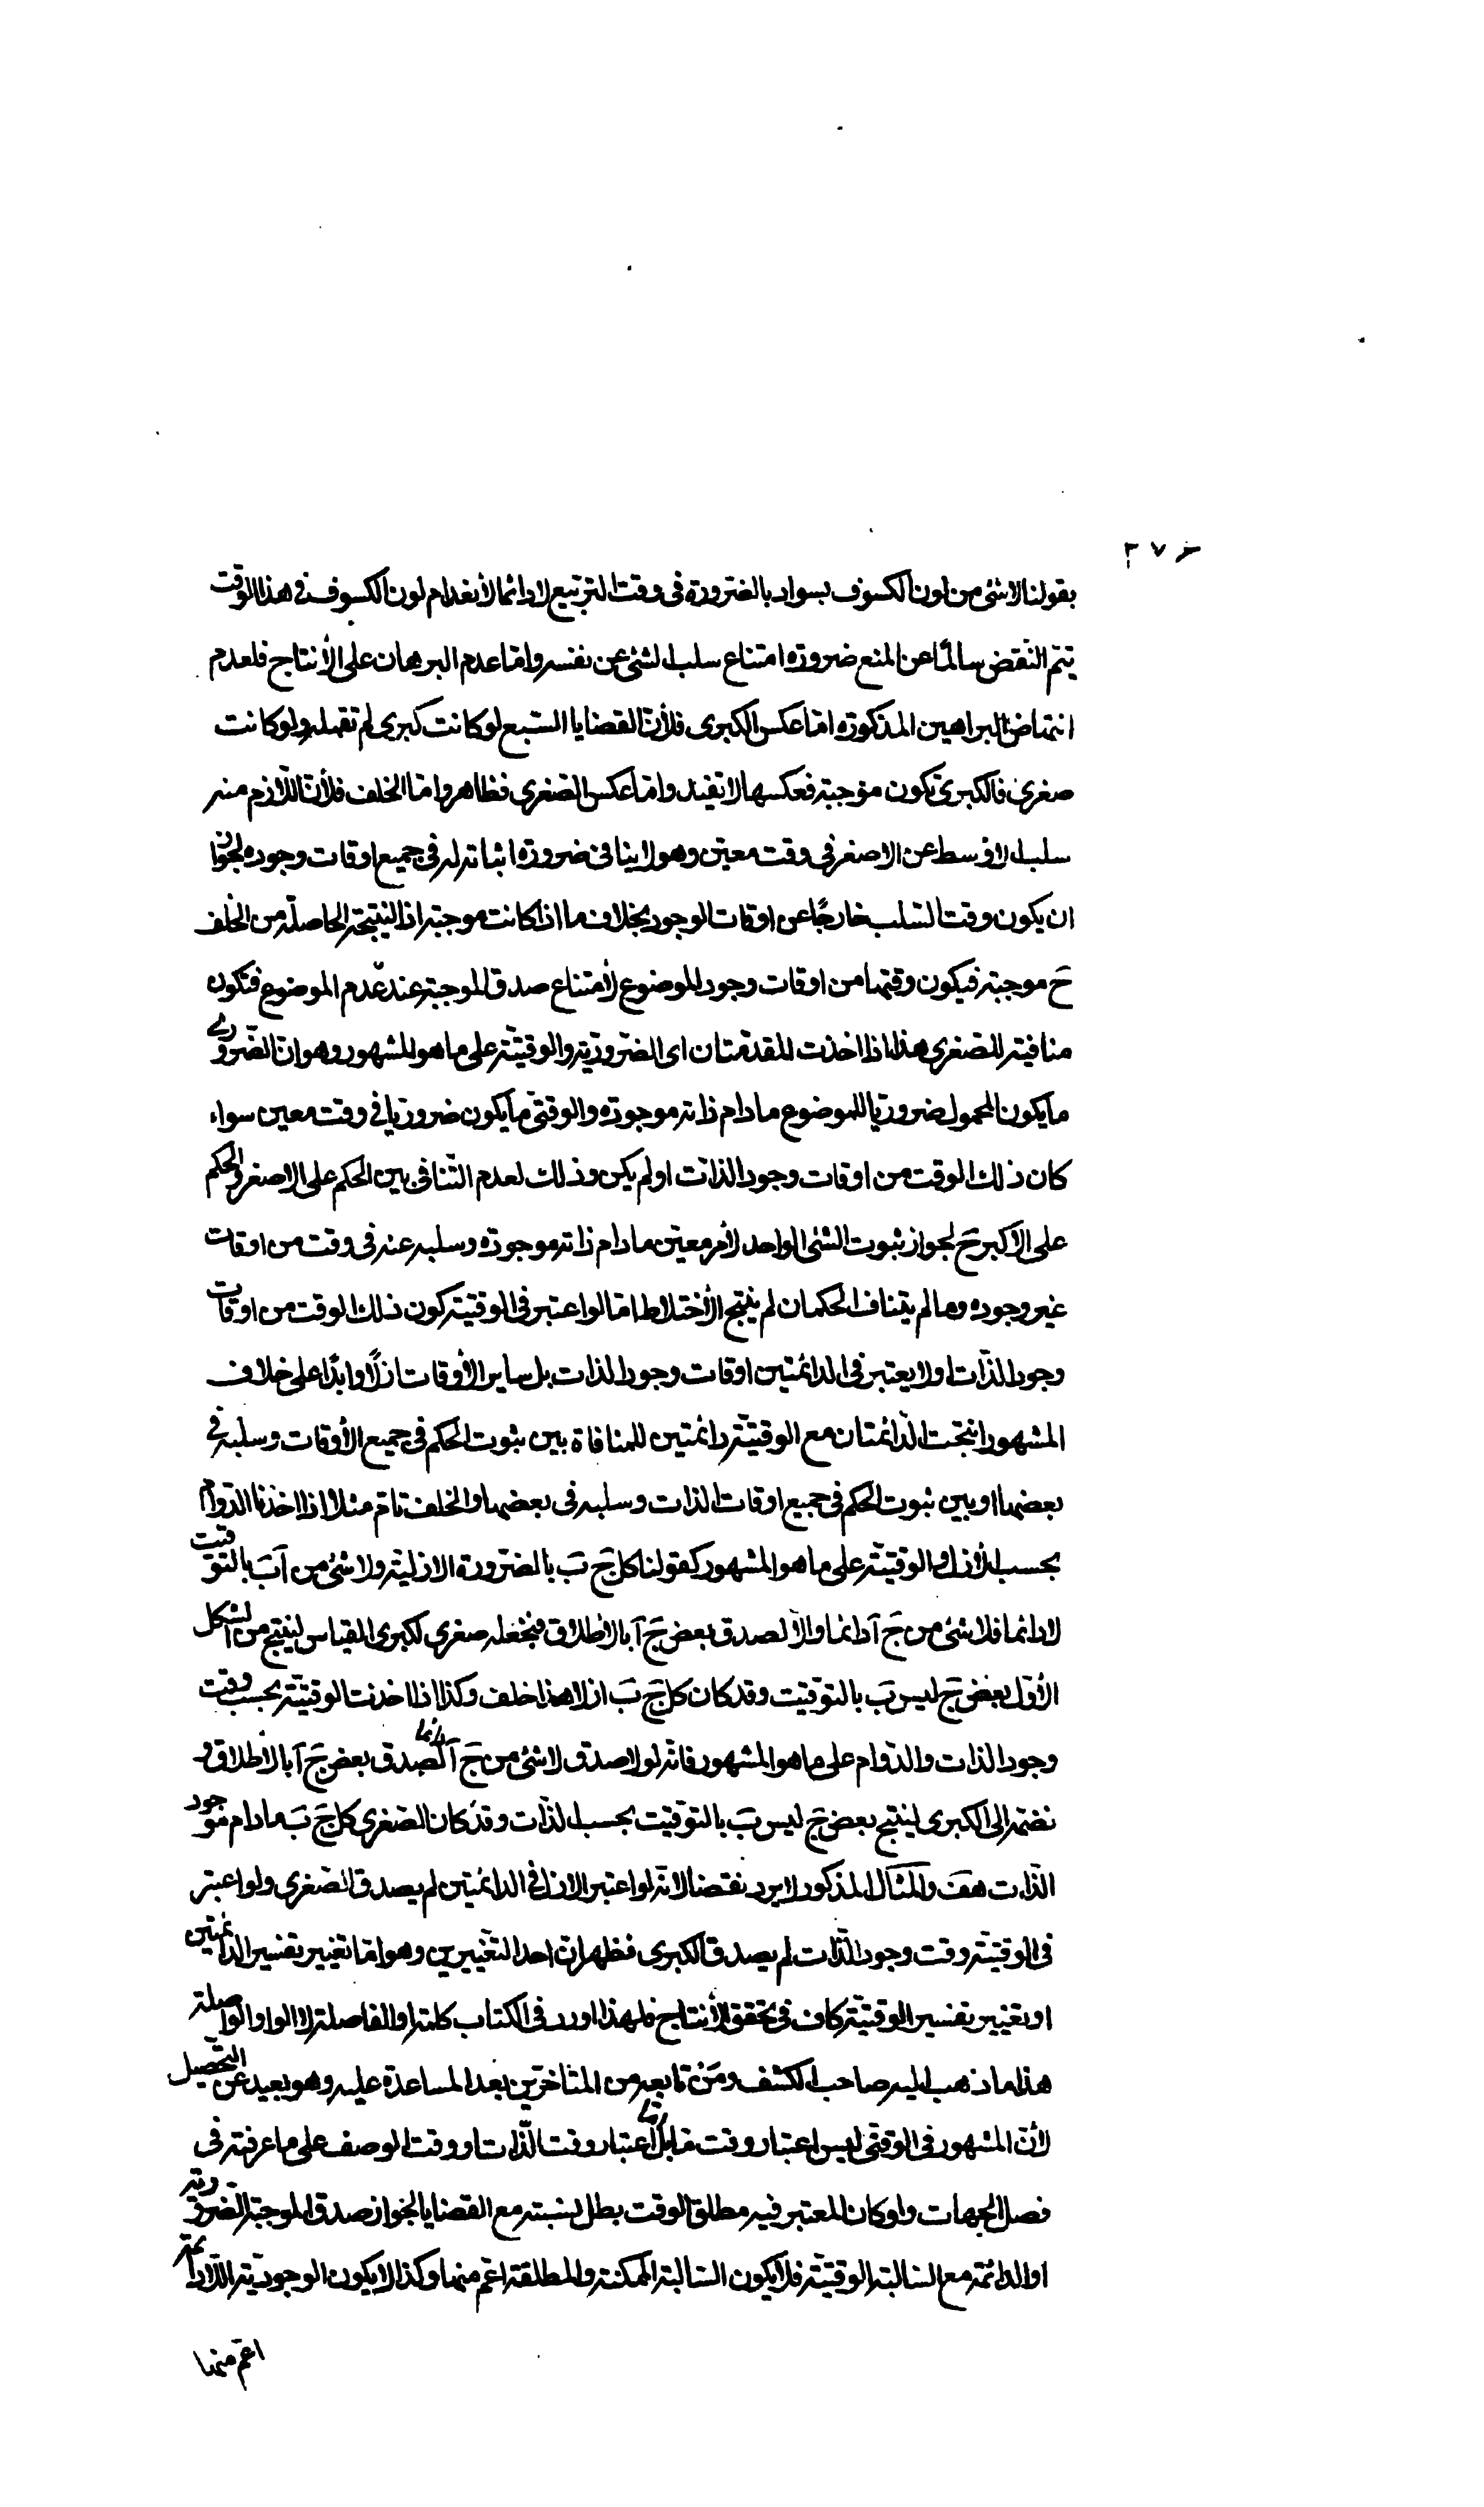 ٢٧٦
بقولنا لا شئ من لون الكسوف بسواد بالضرورة فى وقت التربيع لا دائما لأنعدام لون الكسوف فى هذا الوقت
يتم النقض سالمًا عن المنع ضرورة امتناع سلب الشئ عن نفسه واما عدم البرهان على الأنتاج فلعدم
انتهاض البراهين المذكورة اما عكس الكبرى فلأن القضايا السبع لو كانت كبرى لم تقبله ولو كانت
صغرى فالكبرى تكون موجبة فعكسها لا تفيد واما عكس الصغرى فظاهر واما الخلف فلأن اللازم منه
سلب الاوسط عن الاصغر فى وقت معين وهو لا ينافى ضرورة اثباته له فى جميع اوقات وجوده لجواز
ان يكون وقت السلب خارجًا عن اوقات الوجود بخلاف ما اذا كانت موجبة اذ النتيجة الحاصلة من الخلف
حَ موجبة فيكون وقتها من اوقات وجود الموضوع لأمتناع صدق الموجبة عند عدم الموضوع فتكون
منافية للصغرى هذا اذا اخذت المقدمتان اى الضرورية والوقتية على ما هو المشهور وهو ان الضرورى
ما يكون المحمول ضروريا للموضوع ما دام ذاته موجودة والوقتى ما يكون ضروريا فى وقت معين سواء
كان ذلك الوقت من اوقات وجود الذات او لم يكن وذلك لعدم التنافى بين الحكم على الاصغر والحكم
على الاكبر حَ لجواز ثبوت الشئ الواحد لأمر معين ما دام ذاته موجودة وسلبه عنه فى وقت من اوقات
غير وجوده وما لم يتناف الحكمان لم ينتج الأختلاط اما لو اعتبر فى الوقتية كون ذلك الوقت من اوقات
وجود الذات او لا يعتبر فى الدائمتين اوقات وجود الذات بل ساير الأوقات ازلًا وابدًا على خلاف
المشهور انتجت الدائمتان مع الوقتية دائمتين للمنافاة بين ثبوت الحكم فى جميع الأوقات وسلبه فى
بعضها او بين ثبوت الحكم فى جميع اوقات الذات وسلبه فى بعضها والخلف تام مثلا اذا اخذنا الدوام
بحسب الأزل والوقتية على ما هو المشهور كقولنا كل جَ بَ بالضرورة الازلية ولا شئ من آ بَ بالتوقيت
لا دائما فلا شئ من جَ آ دائما والا لصدق بعض جَ آ بالأطلاق فنجعله صغرى لكبرى القياس لينتج من الشكل
الأول بعض جَ ليس بَ بالتوقيت وقد كان كل جَ بَ ازلا هذا خلف وكذا اذا اخذت الوقتية بحسب وقت
وجود الذات والدوام على ما هو المشهور فانه لولا صدق لا شئ من جَ آ دائما لصدق بعض جَ آ بالأطلاق و
نضمه الى الكبرى لينتج بعض جَ ليس بَ بالتوقيت بحسب الذات وقد كان الصغرى كل جَ بَ ما دام موجود
الذات هف والمثال المذكور لا يرد نقضا لانه لو اعتبر الازل فى الدائمتين لم يصدق الصغرى ولو اعتبر
فى الوقتية وقت وجود الذات لم يصدق الكبرى فظهر ان احد التغييرين وهو اما تغيير تفسير الدائمتين
او تغيير تفسير الوقتية كاف فى تحقق الأنتاج فلهذا اورد فى الكتاب كلمة او الفاصلة لا الواو الواصلة
هذا ما ذهب اليه صاحب الكشف ومَنْ تابعه من المتاخرين بعد المساعدة عليه وهو بعيد عن التحصيل
لأن المشهور فى الوقتى ليس اعتبار وقت ما بل اعتبار وقت الذات او وقت الوصف على ما عرفته فى
فصل الجهات ولو كان المعتبر فيه مطلق الوقت بطل نسبته مع القضايا لجواز صدق الموجبة الضرورية
او الدائمة مع السالبة الوقتية فلا يكون السالبة الممكنة والمطلقة اعم منها وكذا لا يكون الوجودية اللادائمة
اعم منها